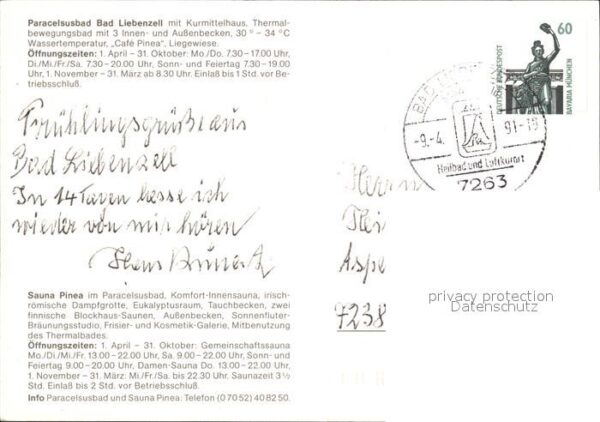 Paracelsusbad Bad Liebenzell mit Kurmittelhaus, Thermal-
bewegungsbad mit 3 Innen- und Außenbecken, 30° – 34 °C
Wassertemperatur, „Café Pinea“, Liegewiese.
Öffnungszeiten: 1. April – 31. Oktober: Mo./Do. 7.30 –17.00 Uhr,
Di./Mi./Fr./Sa. 7.30 - 20.00 Uhr, Sonn- und Feiertag 7.30 –19.00
Uhr, 1. November – 31. März ab 8.30 Uhr. Einlaß bis 1 Std. vor Be-
triebsschluß.
Frühlingsgrüße aus
Bad Liebenzell
In 14 Tagen lasse ich
wieder von mir hören
Hans
Sauna Pinea im Paracelsusbad, Komfort-Innensauna, irisch-
römische Dampfgrotte, Eukalyptusraum, Tauchbecken, zwei
finnische Blockhaus-Saunen, Außenbecken, Sonnenfluter-
Bräunungsstudio, Frisier- und Kosmetik-Galerie, Mitbenutzung
des Thermalbades.
Öffnungszeiten: 1. April – 31. Oktober: Gemeinschaftssauna
Mo./Di./Mi./Fr. 13.00 – 22.00 Uhr, Sa. 9.00 – 22.00 Uhr, Sonn- und
Feiertag 9.00 – 20.00 Uhr, Damen-Sauna Do. 13.00 – 22.00 Uhr,
1. November – 31. März: Mi./Fr./Sa. bis 22.30 Uhr. Saunazeit 3½
Std. Einlaß bis 2 Std. vor Betriebsschluß.
Info Paracelsusbad und Sauna Pinea: Telefon (0 70 52) 40 82 50.
60
DEUTSCHE BUNDESPOST
BAVARIA MÜNCHEN
BAD
-9.-4. 91-18
Heilbad und Luftkurort
7263
Herrn
Aspe
7238
privacy protection
Datenschutz